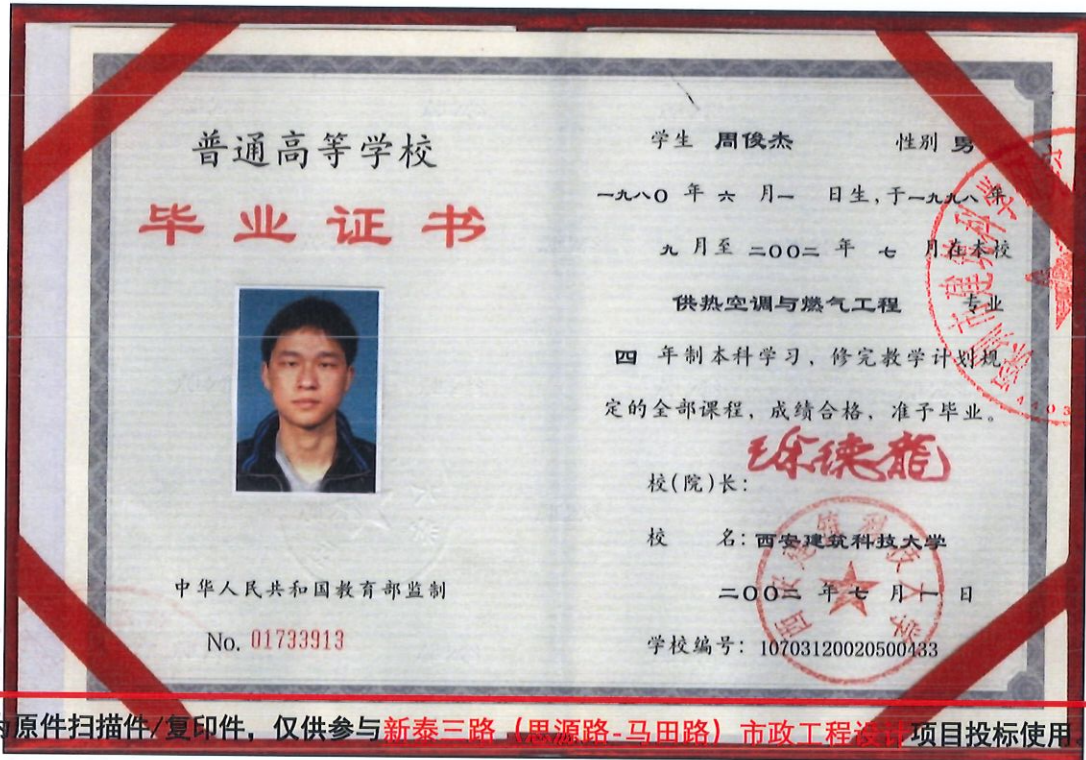 普通高等学校
毕业证书
中华人民共和国教育部监制
No. 01733913
学生 周俊杰 性别 男
一九八〇 年 六 月 一 日生，于 一九九八 年
九 月至 二〇〇二 年 七 月在本校
供热空调与燃气工程 专业
四 年制本科学习，修完教学计划规
定的全部课程，成绩合格，准予毕业。
校(院)长：
校 名：西安建筑科技大学
二〇〇二 年 七 月 一 日
学校编号：10703120020500433
西安建筑科技大学
原件扫描件/复印件，仅供参与新泰三路（思源路-马田路）市政工程设计项目投标使用